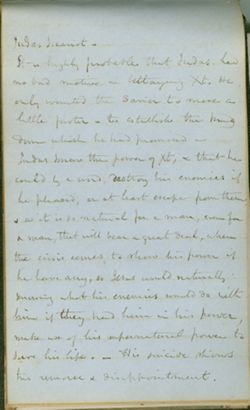 Judas Iscariot –
It is highly probable that Judas had
no bad motive in betraying Xt. He
only wanted the Savior to move a
little faster – to establish the King
dom which he had promised –
Judas knew the power of Xt, & that he
could by a word, destroy his enemies if
he pleased, or at least escape from them
& as it is so natural for a man, even for
a man, that will bear a great deal, when
the crisis comes, to show his power if
he have any, so Jesus would naturally
knowing what his enemies would do with
him if they had him in his power,
make use of his supernatural power to
save his life. – His suicide shows
his remorse & disappointment.